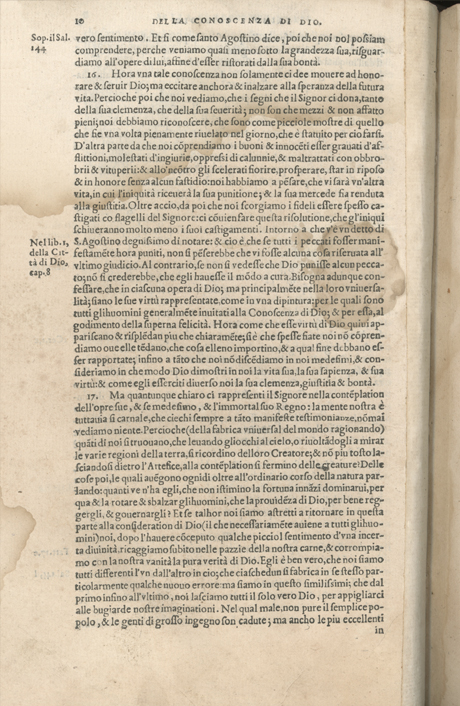 10 DELLA CONOSCENZA DI DIO.
Sop. il Sal.
144
vero sentimento. Et si come santo Agostino dice, poi che noi nol possiam
comprendere, perche veniamo quasi meno sotto la grandezza sua, risguar-
diamo all'opere di lui, affine d'esser ristorati dalla sua bontà.
16. Hora vna tale conoscenza non solamente ci dee mouere ad hono-
rare & seruir Dio; ma eccitare anchora & inalzare alla speranza della futura
vita. Percioche poi che noi vediamo, che i segni che il Signor ci dona, tanto
della sua clemenza, che della sua seuerità; non son che mezzi & non affatto
pieni; noi debbiamo riconoscere, che sono come picciole mostre di quello
che sie vna volta pienamente riuelato nel giorno, che è statuito per cio farsi.
D'altra parte da che noi cōprendiamo i buoni & innocēti esser grauati d'af-
flittioni, molestati d'ingiurie, oppressi di calunnie, & maltrattati con obbro-
brii & vituperii: & allo 'ncōtro gli scelerati fiorire, prosperare, star in riposo
& in honore senza alcun fastidio: noi habbiamo a pēsare, che vi sarà vn'altra
vita, in cui l'iniquità riceuerà la sua punitione; & la sua mercede fia renduta
alla giustitia. Oltre accio, da poi che noi scorgiamo i fideli essere spesso ca-
stigati co flagelli del Signore: ci cōuien fare questa risolutione, che gl'iniqui
schiueranno molto meno i suoi castigamenti. Intorno a che v'è vn detto di
Nel lib. 1,
della Cit-
tà di Dio,
cap. 8
S. Agostino degnissimo di notare: & cio è, che se tutti i peccati fosser mani-
festamēte hora puniti, non si pēserebbe che vi fosse alcuna cosa riseruata all'
vltimo giudicio. Al contrario, se non si vedesse che Dio punisse alcun pecca-
to; nō si crederebbe, che egli hauesse il mōdo a cura. Bisogna adunque con-
fessare, che in ciascuna opera di Dio; ma principalmēte nella loro vniuersa-
lità; siano le sue virtù rappresentate, come in vna dipintura: per le quali sono
tutti gli huomini generalmēte inuitati alla Conoscenza di Dio; & per essa, al
godimento della superna felicità. Hora come che esse virtù di Dio quiui ap-
pariscano & risplēdan piu che chiaramēte; si è che spesse fiate noi nō cōpren-
diamo oue elle tēdano, che cosa elleno importino, & a qual fine debbano es-
ser rapportate; infino a tāto che noi nō discēdiamo in noi medesimi, & con-
sideriamo in che modo Dio dimostri in noi la vita sua, la sua sapienza, & sua
virtù: & come egli esserciti diuerso noi la sua clemenza, giustitia & bontà.
17. Ma quantunque chiaro ci rappresenti il Signore nella contēplation
dell'opre sue, & se medesimo, & l'immortal suo Regno: la mente nostra è
tuttauia si carnale, che ciechi sempre a tāto manifeste testimonianze, nō mai
vediamo niente. Percioche (della fabrica vniuersal del mondo ragionando)
quāti di noi si truouano, che leuando gli occhi al cielo, o riuoltādogli a mirar
le varie regioni della terra, si ricordino del loro Creatore; & nō piu tosto la-
sciandosi dietro l'Artefice, alla contēplation si fermino delle creature? Delle
cose poi, le quali auēgono ognidi oltre all'ordinario corso della natura par-
lando: quanti ve n'ha egli, che non istimino la fortuna innāzi dominarui, per
qua & la rotare & sbalzar gli huomini, che la prouidēza di Dio, per bene reg-
gergli, & gouernargli? Et se tal hor noi siamo astretti a ritornare in questa
parte alla consideration di Dio (il che necessariamēte auiene a tutti gli huo-
mini) noi, dopo l'hauere cōceputo qualche picciol sentimento d'vna incer-
ta diuinità, ricaggiamo subito nelle pazzie della nostra carne, & corrompia-
mo con la nostra vanità la pura verità di Dio. Egli è ben vero, che noi siamo
tutti differenti l'vn dall'altro in cio; che ciaschedun si fabrica in se stesso par-
ticolarmente qualche nuouo errore: ma siamo in questo similissimi; che dal
primo insino all'vltimo, noi lasciamo tutti il solo vero Dio, per appigliarci
alle bugiarde nostre imaginationi. Nel qual male, non pure il semplice po-
polo, & le genti di grosso ingegno son cadute; ma ancho le piu eccellenti
in